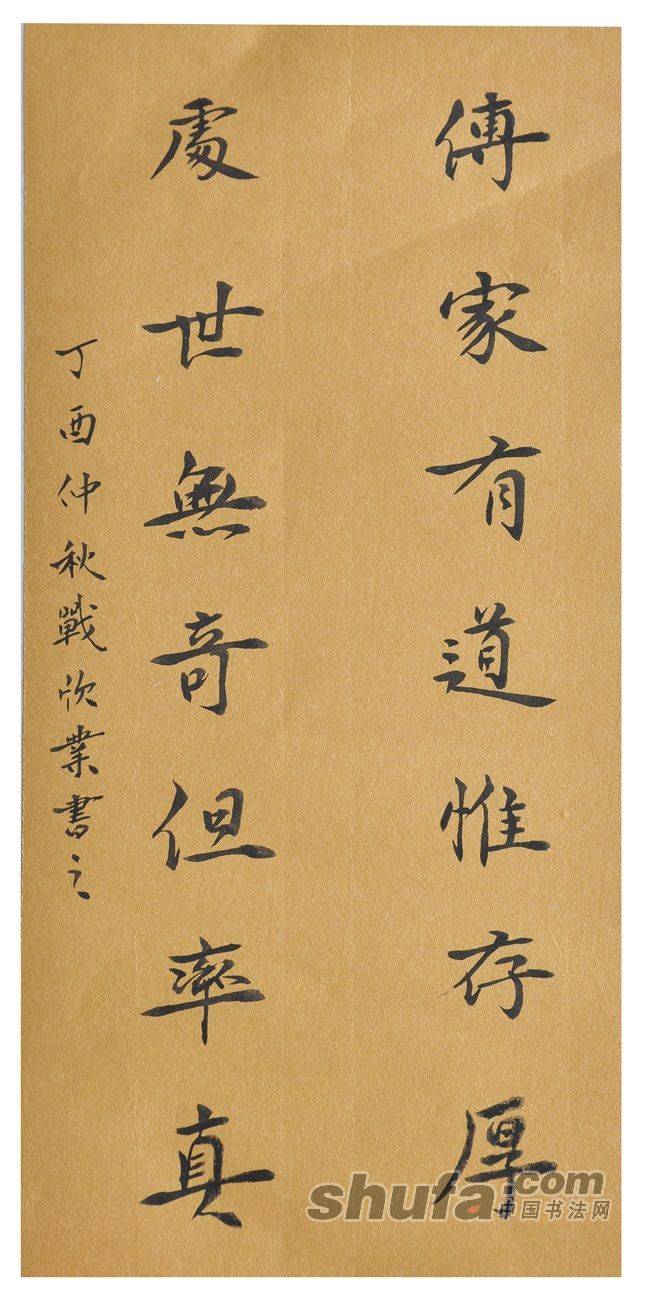 傳家有道惟存厚
處世無奇但率真
丁酉仲秋戰欣業書之
shufa.com
中国书法网